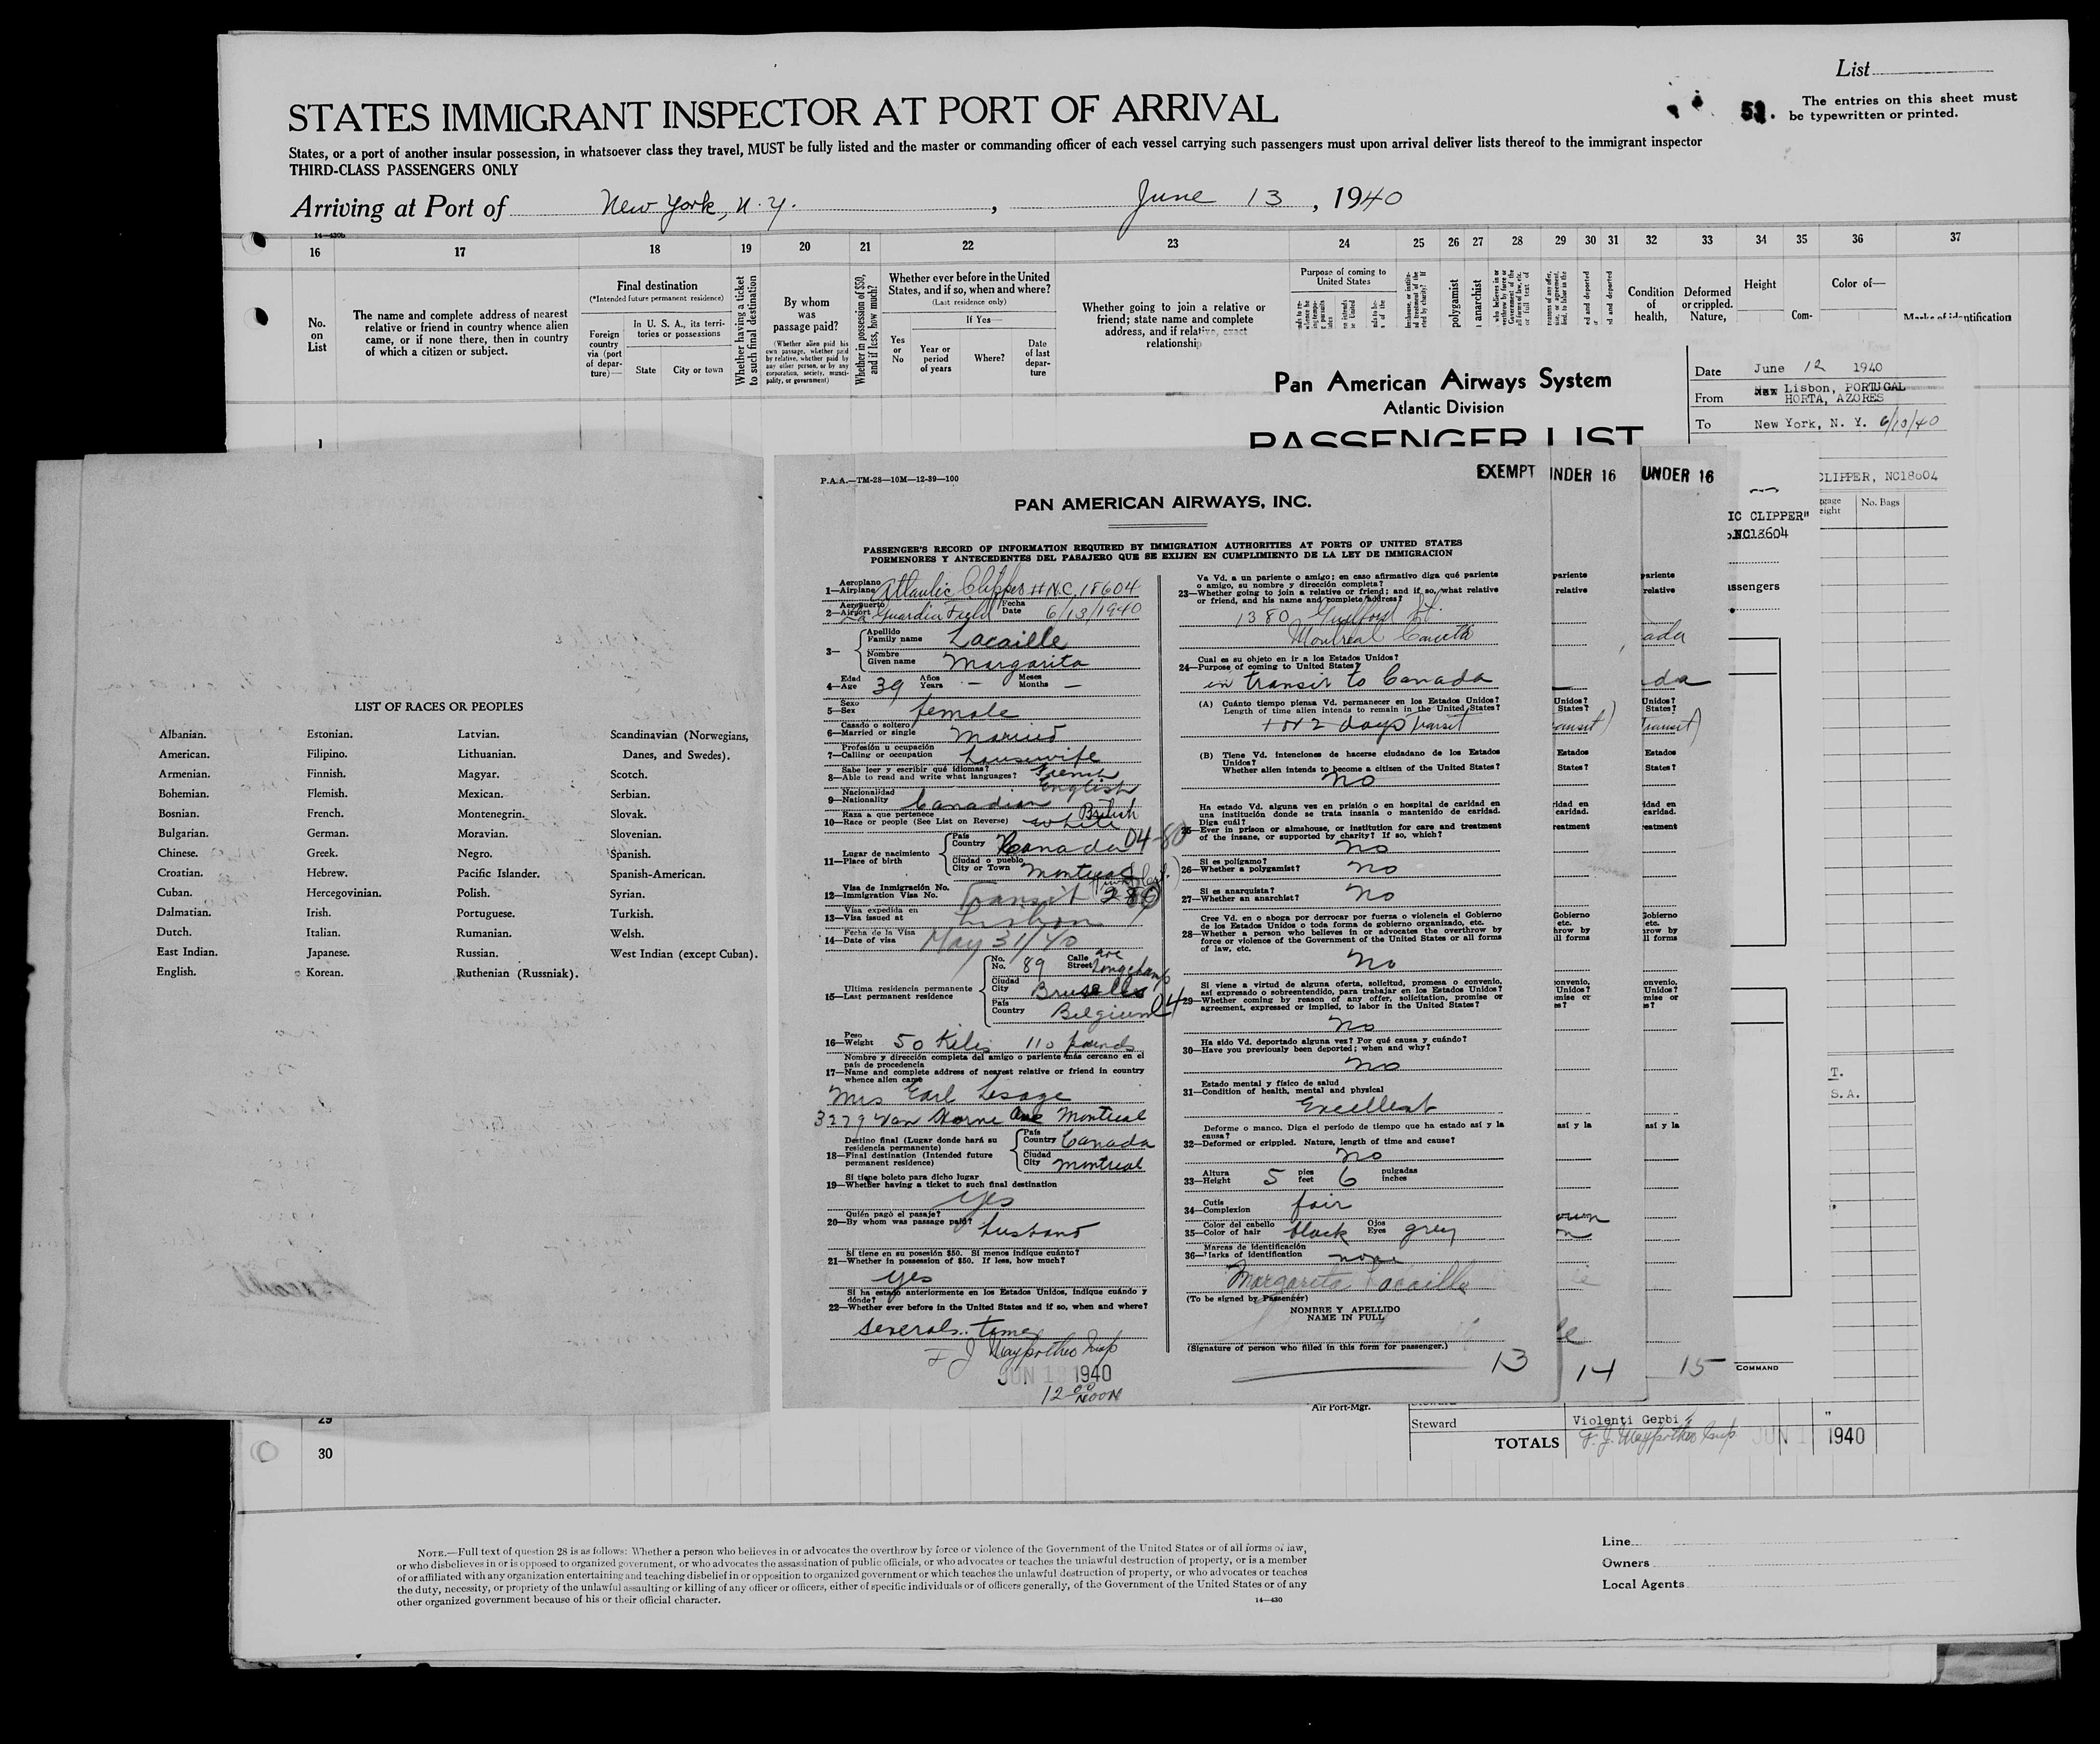 List
STATES IMMIGRANT INSPECTOR AT PORT OF ARRIVAL
53.
The entries on this sheet must
be typewritten or printed.
States, or a port of another insular possession, in whatsoever class they travel, MUST be fully listed and the master or commanding officer of each vessel carrying such passengers must upon arrival deliver lists thereof to the immigrant inspector
THIRD-CLASS PASSENGERS ONLY
Arriving at Port of New York, N.Y. , June 13, 1940
14—430b
16 17 18 19 20 21 22 23 24 25 26 27 28 29 30 31 32 33 34 35 36 37
No. on List
The name and complete address of nearest
relative or friend in country whence alien
came, or if none there, then in country
of which a citizen or subject.
Final destination
(*Intended future permanent residence)
Foreign country via (port of departure)—
In U. S. A., its territories or possessions
State City or town
Whether having a ticket to such final destination
By whom was passage paid?
(Whether alien paid his own passage, whether paid by relative, whether paid by any other person, or by any corporation, society, municipality, or government)
Whether in possession of $50, and if less, how much?
Whether ever before in the United
States, and if so, when and where?
(Last residence only)
Yes or No
If Yes—
Year or period of years
Where?
Date of last departure
Whether going to join a relative or
friend; state name and complete
address, and if relative, exact
relationship
Purpose of coming to
United States
polygamist
anarchist
Condition of health,
Deformed or crippled. Nature,
Height
Com-
Color of—
Marks of identification
Pan American Airways System
Atlantic Division
PASSENGER LIST
Date June 12 1940
From Lisbon, PORTUGAL
HORTA, AZORES
To New York, N. Y. 6/10/40
CLIPPER, NC18604
No. Bags
IC CLIPPER"
NC18604
assengers
1
LIST OF RACES OR PEOPLES
Albanian. Estonian. Latvian. Scandinavian (Norwegians,
American. Filipino. Lithuanian. Danes, and Swedes).
Armenian. Finnish. Magyar. Scotch.
Bohemian. Flemish. Mexican. Serbian.
Bosnian. French. Montenegrin. Slovak.
Bulgarian. German. Moravian. Slovenian.
Chinese. Greek. Negro. Spanish.
Croatian. Hebrew. Pacific Islander. Spanish-American.
Cuban. Hercegovinian. Polish. Syrian.
Dalmatian. Irish. Portuguese. Turkish.
Dutch. Italian. Rumanian. Welsh.
East Indian. Japanese. Russian. West Indian (except Cuban).
English. Korean. Ruthenian (Russniak).
P.A.A.—TM-28—10M—12-39—100
EXEMPT UNDER 16 UNDER 16
PAN AMERICAN AIRWAYS, INC.
PASSENGER'S RECORD OF INFORMATION REQUIRED BY IMMIGRATION AUTHORITIES AT PORTS OF UNITED STATES
PORMENORES Y ANTECEDENTES DEL PASAJERO QUE SE EXIJEN EN CUMPLIMIENTO DE LA LEY DE IMMIGRACION
Aeroplano
1—Airplane Atlantic Clipper #N.C. 18604
Aeropuerto Fecha
2—Airport La Guardia Field Date 6/13/1940
3— Apellido
Family name Lacaille
Nombre
Given name Margarita
Edad Años Meses
4—Age 39 Years — Months —
Sexo
5—Sex female
Casado o soltero
6—Married or single Married
Profesión u ocupación
7—Calling or occupation housewife
Sabe leer y escribir qué idiomas?
8—Able to read and write what languages? French
English
Nacionalidad
9—Nationality Canadian British
Raza a que pertenece
10—Race or people (See List on Reverse) white
Lugar de nacimiento
11—Place of birth
País
Country Canada 04-80
Ciudad o pueblo
City or Town Montreal
Visa de Inmigración No.
12—Immigration Visa No. Transit 280
Visa expedida en
13—Visa issued at Lisbon
Fecha de la Visa
14—Date of visa May 31/40
Ultima residencia permanente
15—Last permanent residence
No.
No. 89 Calle
Street ave Longchamp
Ciudad
City Bruselles
País
Country Belgium 04
Peso
16—Weight 50 Kilis 110 pounds
Nombre y dirección completa del amigo o pariente más cercano en el
país de procedencia
17—Name and complete address of nearest relative or friend in country
whence alien came
Mrs Earl Lesage
3279 Van Horne Ave Montreal
Destino final (Lugar donde hará su
residencia permanente)
18—Final destination (Intended future
permanent residence)
País
Country Canada
Ciudad
City Montreal
Si tiene boleto para dicho lugar
19—Whether having a ticket to such final destination
yes
Quién pagó el pasaje?
20—By whom was passage paid? husband
Si tiene en su posesión $50. Si menos indique cuánto?
21—Whether in possession of $50. If less, how much?
yes
Si ha estado anteriormente en los Estados Unidos, indique cuándo y
dónde?
22—Whether ever before in the United States and if so, when and where?
severals times
JUN 13 1940
12 00 NOON
Va Vd. a un pariente o amigo; en caso afirmativo diga qué pariente
o amigo, su nombre y dirección completa?
23—Whether going to join a relative or friend; and if so, what relative
or friend, and his name and complete address?
1380 Guilford St.
Montreal Canada
Cual es su objeto en ir a los Estados Unidos?
24—Purpose of coming to United States?
in transit to Canada
(A) Cuánto tiempo piensa Vd. permanecer en los Estados Unidos?
Length of time alien intends to remain in the United States?
1 or 2 days transit
(B) Tiene Vd. intenciones de hacerse ciudadano de los Estados
Unidos?
Whether alien intends to become a citizen of the United States?
no
Ha estado Vd. alguna vez en prisión o en hospital de caridad en
una institución donde se trata insania o mantenido de caridad.
Diga cuál?
25—Ever in prison or almshouse, or institution for care and treatment
of the insane, or supported by charity? If so, which?
no
Si es polígamo?
26—Whether a polygamist? no
Si es anarquista?
27—Whether an anarchist? no
Cree Vd. en o aboga por derrocar por fuerza o violencia el Gobierno
de los Estados Unidos o toda forma de gobierno organizado, etc.
28—Whether a person who believes in or advocates the overthrow by
force or violence of the Government of the United States or all forms
of law, etc.
no
Si viene a virtud de alguna oferta, solicitud, promesa o convenio,
así expresado o sobreentendido, para trabajar en los Estados Unidos?
29—Whether coming by reason of any offer, solicitation, promise or
agreement, expressed or implied, to labor in the United States?
no
Ha sido Vd. deportado alguna vez? Por qué causa y cuándo?
30—Have you previously been deported; when and why?
no
Estado mental y físico de salud
31—Condition of health, mental and physical
Excellent
Deforme o manco. Diga el período de tiempo que ha estado así y la
causa?
32—Deformed or crippled. Nature, length of time and cause?
no
Altura pies pulgadas
33—Height 5 feet 6 inches
Cutis
34—Complexion fair
Color del cabello Ojos
35—Color of hair black Eyes grey
Marcas de identificación
36—Marks of identification none
Margarita Lacaille
(To be signed by Passenger)
NOMBRE Y APELLIDO
NAME IN FULL
(Signature of person who filled in this form for passenger.)
13 14 15
COMMAND
T.
S.A.
Air Port-Mgr.
Steward Violenti Gerbi "
TOTALS JUN 1 1940
29
30
NOTE.—Full text of question 28 is as follows: Whether a person who believes in or advocates the overthrow by force or violence of the Government of the United States or of all forms of law,
or who disbelieves in or is opposed to organized government, or who advocates the assassination of public officials, or who advocates or teaches the unlawful destruction of property, or is a member
of or affiliated with any organization entertaining and teaching disbelief in or opposition to organized government or which teaches the unlawful destruction of property, or who advocates or teaches
the duty, necessity, or propriety of the unlawful assaulting or killing of any officer or officers, either of specific individuals or of officers generally, of the Government of the United States or of any
other organized government because of his or their official character.
14—430
Line
Owners
Local Agents